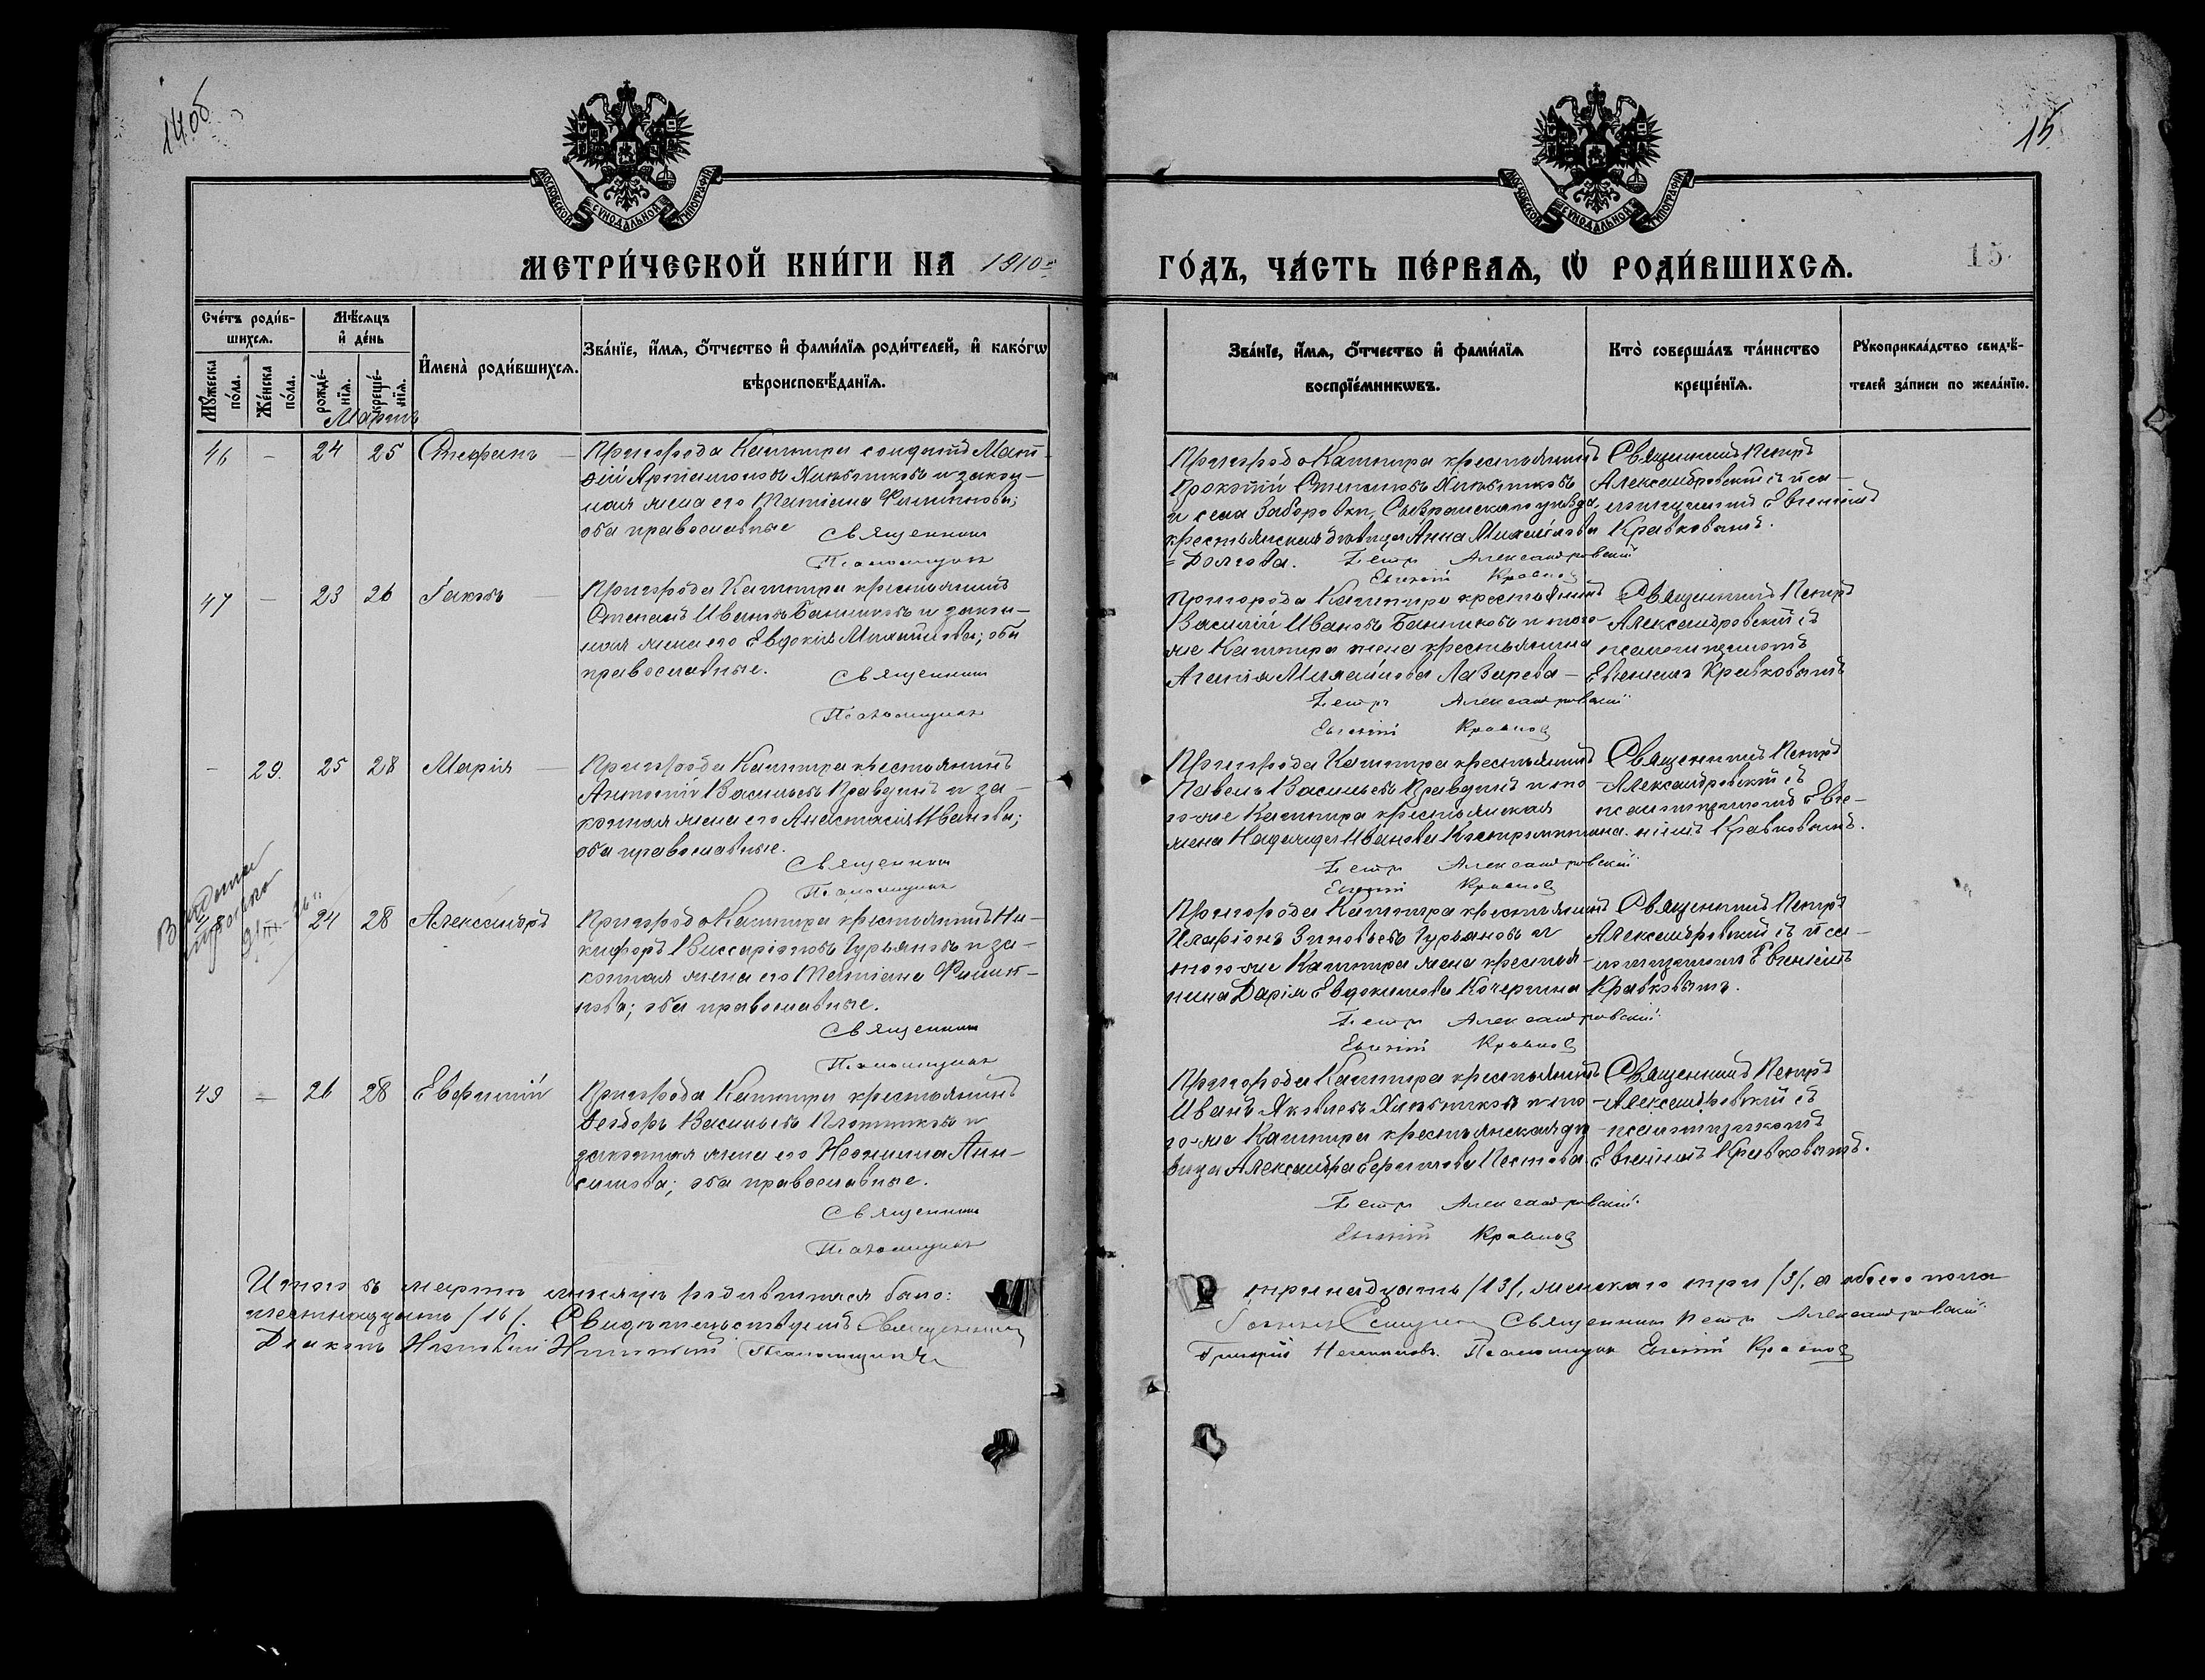 14об
15
МОСКОВСКОЙ СУНОДАЛЬНОЙ ТИПОГРАФІИ
МОСКОВСКОЙ СУНОДАЛЬНОЙ ТИПОГРАФІИ
МЕТРИ́ЧЕСКОЙ КНИ́ГИ НА 1910 г
ГО́ДЪ, ЧА́СТЬ ПЕ́РВАѦ, Ѡ҆ РОДИ́ВШИХСѦ.
15.
Сче́тъ роди́в-
шихсѧ.
Мꙋ́жеска по́ла.
Же́нска по́ла.
Мѣ́сѧцъ
и҆ де́нь
рожде́-нїѧ.
креще́-нїѧ.
И҆мена̀ роди́вшихсѧ.
Зва́нїе, и҆́мѧ, ѻ҆́тчество и҆ фами́лїѧ роди́телей, и҆ како́гѡ
вѣроисповѣ́данїѧ.
Зва́нїе, и҆́мѧ, ѻ҆́тчество и҆ фами́лїѧ
воспрїе́мникѡвъ.
Кто̀ соверша́лъ та́инство
креще́нїѧ.
Рꙋкоприкла́дство свидѣ́-
телей за́писи по жела́нїю.
Мартъ
46 - 24 25 Стефанъ
Пригорода Кашпира солдатъ Мат-
ѳій Артамоновъ Хлѣбниковъ и закон-
ная жена его Татіана Филиппова;
оба православные
Священник
Псаломщик
Пригорода Кашпира крестьянинъ
Прокопій Степановъ Хлѣбниковъ
и села Заборовки, Сызранскаго уѣзда,
крестьянская дѣвица Анна Михайлова
Долгова.
Петр Александровский
Евгений Кравков
Священникъ Петръ
Александровскій съ пса-
ломщикомъ Евгеніемъ
Кравковымъ.
47 - 23 26 Іаковъ
Пригорода Кашпира крестьянинъ
Степанъ Ивановъ Банниковъ и закон-
ная жена его Евдокія Михайлова; оба
православные.
Священник
Псаломщик
Пригорода Кашпира крестьянинъ
Василій Ивановъ Банниковъ и того-
же Кашпира жена крестьянина
Агапія Михайлова Лазарева
Петр Александровский
Евгений Кравков
Священникъ Петръ
Александровскій съ
псаломщикомъ
Евгеніемъ Кравковымъ
- 29. 25 28 Марія
Пригорода Кашпира крестьянинъ
Антоній Васильевъ Правдинъ и за-
конная жена его Анастасія Иванова;
оба православные.
Священник
Псаломщик
Пригорода Кашпира крестьянинъ
Павелъ Васильевъ Правдинъ и то-
го-же Кашпира крестьянская
жена Надежда Иванова
Петр Александровский
Евгений Кравков
Священникъ Петръ
Александровскій съ
псаломщикомъ Евге-
ніемъ Кравковымъ.
24 28 Александръ
Пригорода Кашпира крестьянинъ Ни-
кифоръ Виссаріоновъ Гурьяновъ и за-
конная жена его Татіана Филип-
пова; оба православные.
Священник
Псаломщик
Пригорода Кашпира крестьянинъ
Иларіонъ Зиновьевъ Гурьяновъ и
того-же Кашпира жена крестья-
нина Дарія Евдокимова Кочергина
Петр Александровский
Евгений Кравков
Священникъ Петръ
Александровскій съ пса-
ломщикомъ Евгеніемъ
Кравковымъ.
49 - 26 28 Евфимій
Пригорода Кашпира крестьянинъ
Ѳеодоръ Васильевъ Плотниковъ и
законная жена его Неонилла Ани-
симова; оба православные.
Священник
Псаломщик
Пригорода Кашпира крестьянинъ
Иванъ Яковлевъ Хлѣбниковъ и то-
го-же Кашпира крестьянская дѣ-
вица Александра Ефимова Пестова
Петр Александровский
Евгений Кравков
Священникъ Петръ
Александровскій съ
псаломщикомъ
Евгеніемъ Кравковымъ.
Итого въ мартѣ мѣсяцѣ родившихся было:
тринадцать /13/, женскаго три /3/, а обоего пола
шестнадцать /16/. Свидѣтельствуемъ Священник
Священник Петр Александровский
Діаконъ Псаломщик
Григорій Псаломщик Евгений Кравков